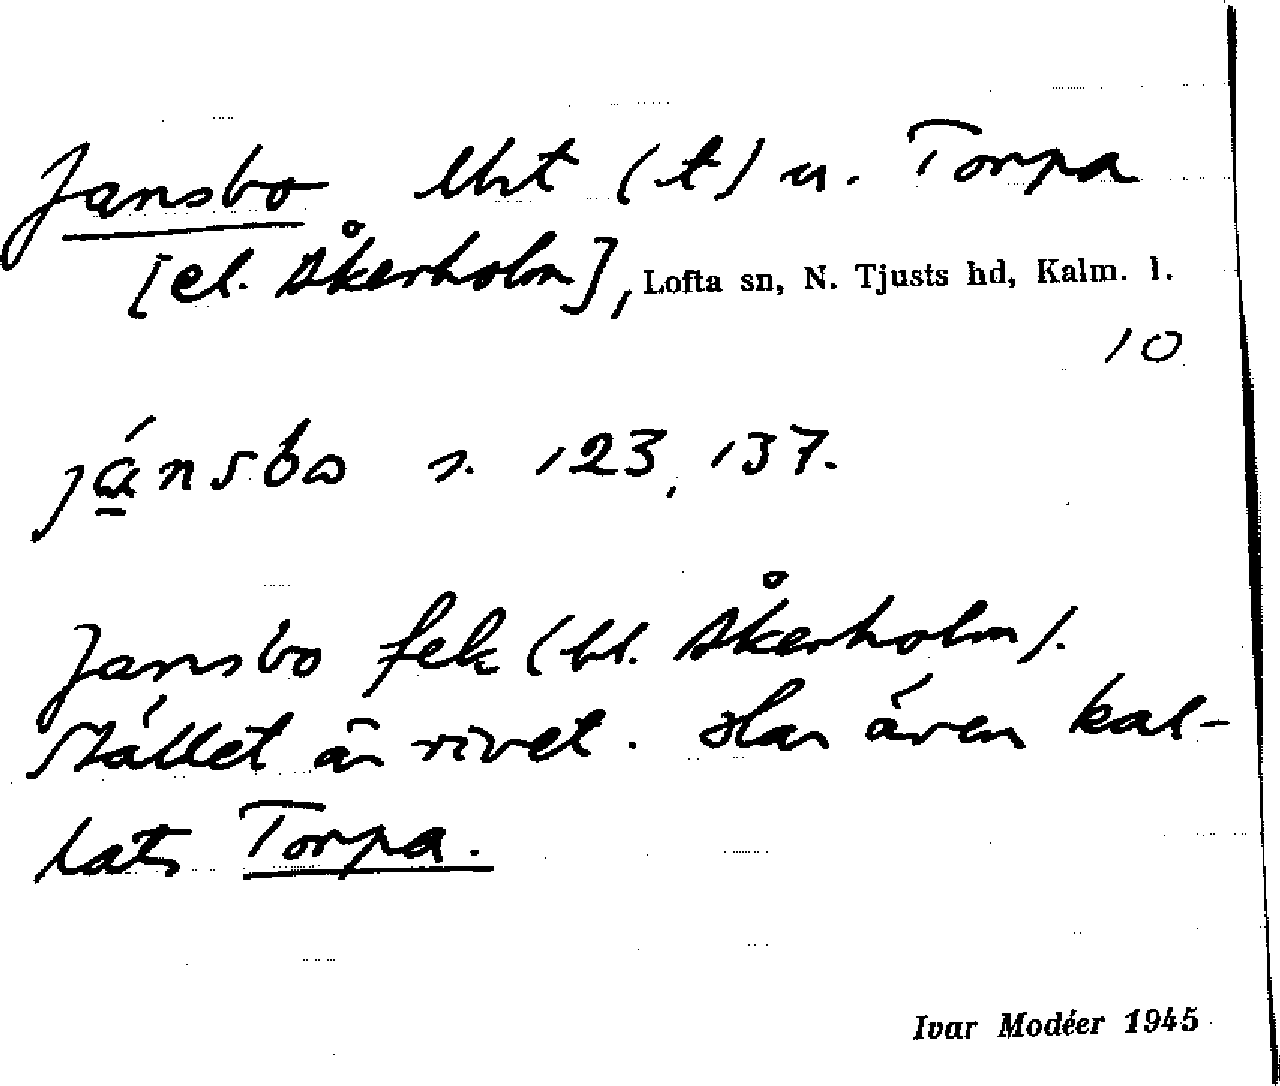 Jansbo lht (t) u. Torpa
[el. Åkerholm], Lofta sn, N. Tjusts hd, Kalm. l.
10
jánsbo s. 123, 137.
Jansbo fek (bl. Åkerholm).
Stället är rivet. Har även kal-
lats Torpa.
Ivar Modéer 1945